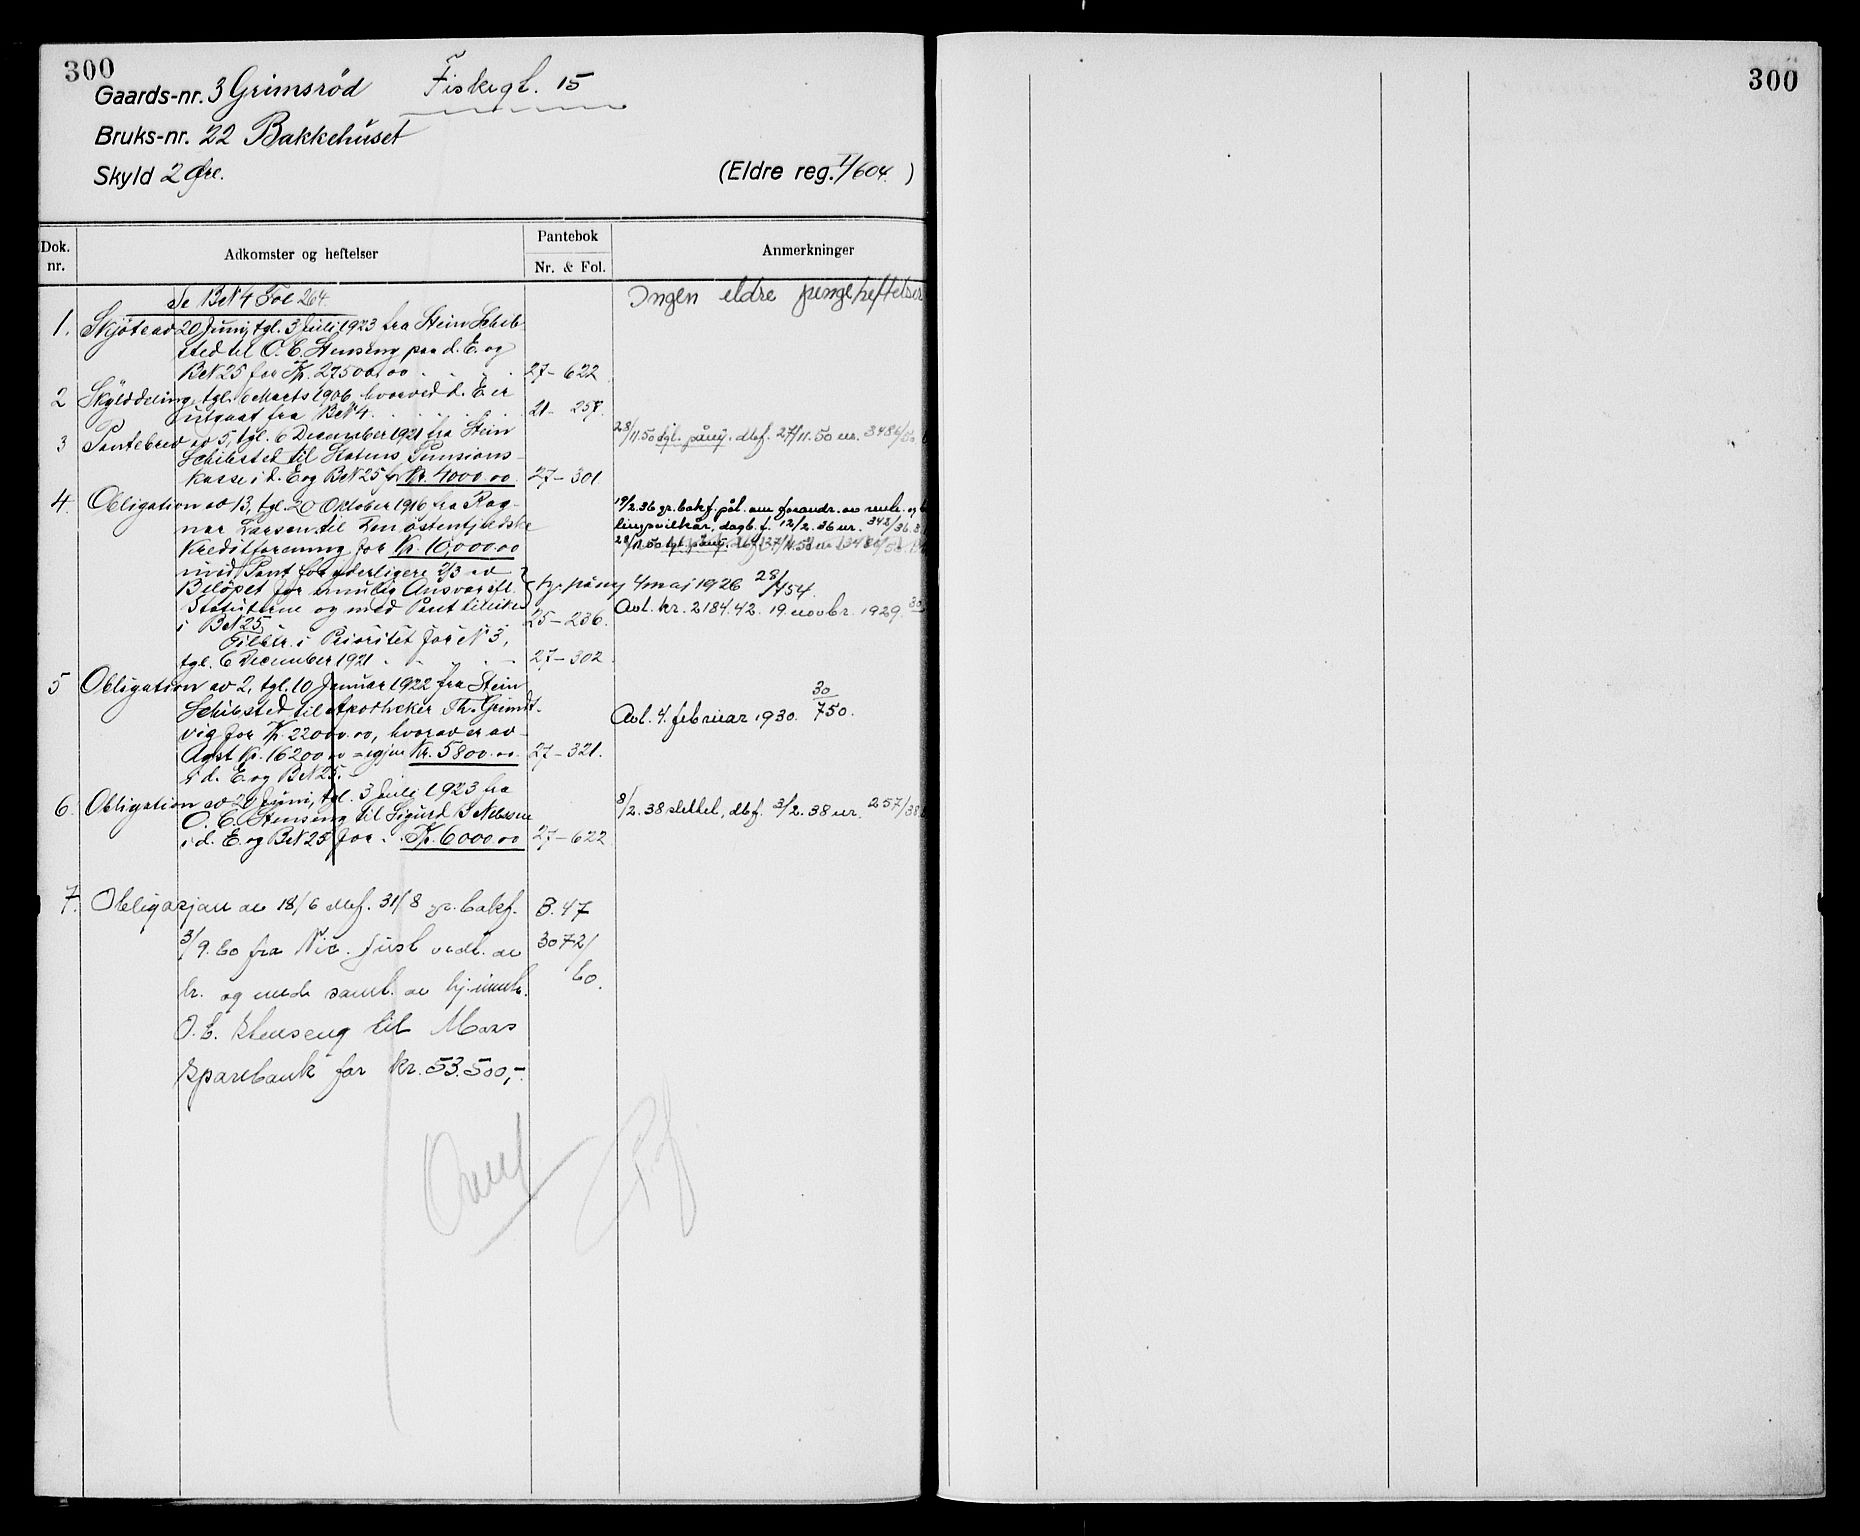 300
Gaards-nr. 3 Grimsröd Fiskegt. 15
Bruks-nr. 22 Bakkehuset
Skyld 2 Øre.
(Eldre reg. I/604. )
Dok. nr.
Adkomster og heftelser
Pantebok
Nr. & Fol.
Anmerkninger
Se BN 4 Fol 264.
Ingen eldre pengeheftelser
1. Skjöte av 20 Juni, tgl. 3 Juli 1923 fra Stein Schib-
sted til O. C. Stenseng paa d. E. og
BN 25 for Kr. 27500.00 . . . . 27-622
2 Skylddeling, tgl. 6 Marts 1906, hvorved d. E. er
utgaat fra BN 4. . . . . 21- 258.
3 Pantebrev av 5, tgl. 6 December 1921 fra Stein
Schibsted til Statens Pensions-
kasse i d. E og BN 25 for Kr. 4000.00. 27-301
28/11.50 tgl. påny. dbf. 27/11.50 nr. 3486/50
4. Obligation av 13, tgl. 20 Oktober 1916 fra Rag-
nar Larsen til Den östenfjeldske
Kreditforening for Kr. 10,000.00
med Pant for yderligere 2/3 av
Belöpet for mulig Ansvar efl.
Statuterne og med Pant tillike
i BN 25 25-236.
Tilbtr. i Prioritet for N 3,
tgl. 6 December 1921 . . . . 27-302
19/2.36 gr.bokf. pål. om forandr. av rente- og
lingsvilkår, dagb.f. 12/2.36 nr. 348/36.
28/11.50 tgl. påny. dbf. 27/11.50 nr. 3486/50
tgl. påny 4 mai 1926 28/454.
Avl. kr. 2184.42. 19. novbr. 1929. 30
5 Obligation av 2, tgl. 10 Januar 1922 fra Stein
Schibsted til Apotheker Th. Grundt-
vig for Kr. 22000.00, hvorav er av-
lyst Kr. 16200.00 - igjen Kr. 5800.00 27-321.
i d. E. og BN 25.
Avl. 4. februar 1930. 30/750.
6. Obligation av 20 Juni, tgl. 3 Juli 1923 fra
O. C. Stenseng til Sigurd B. Nilssen
i d. E. og BN 25 for . . Kr. 6000.00 27-622
8/2.38 slettet, dbf. 3/2.38 nr. 257/38
7. Obligasjon av 18/6 dbf. 31/8 gr. bokf. B. 47
3/9.60 fra Nic. Just vedr. av 3072/
br. og med samt. av hj. inneh. 60.
O. C. Stenseng til Moss
Sparebank for kr. 53.500,-.
300